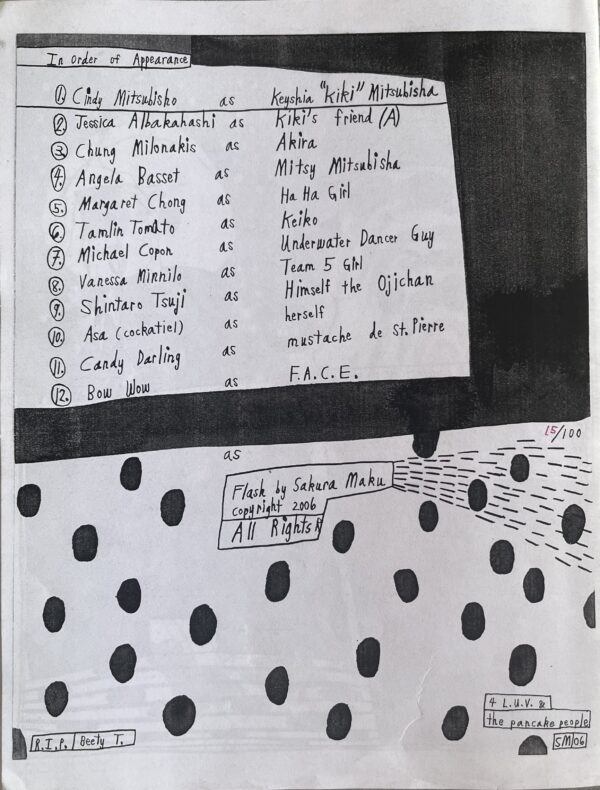 In Order of Appearance
1. Cindy Mitsubisho as Keyshia "Kiki" Mitsubisha
2. Jessica Albakahashi as Kiki's friend (A)
3. Chung Milonakis as Akira
4. Angela Basset as Mitsy Mitsubisha
5. Margaret Chong as Ha Ha Girl
6. Tamlin Tomato as Keiko
7. Michael Copon as Underwater Dancer Guy
8. Vanessa Minnilo as Team 5 Girl
9. Shintaro Tsuji as Himself the Ojichan
10. Asa (cockatiel) as herself
11. Candy Darling as mustache de St. Pierre
12. Bow Wow as F.A.C.E.
as
15/100
Flask by Sakura Maku
copyright 2006
All Rights R
4 L.U.V. &
the pancake people
R.I.P. Beety T.
SM/06